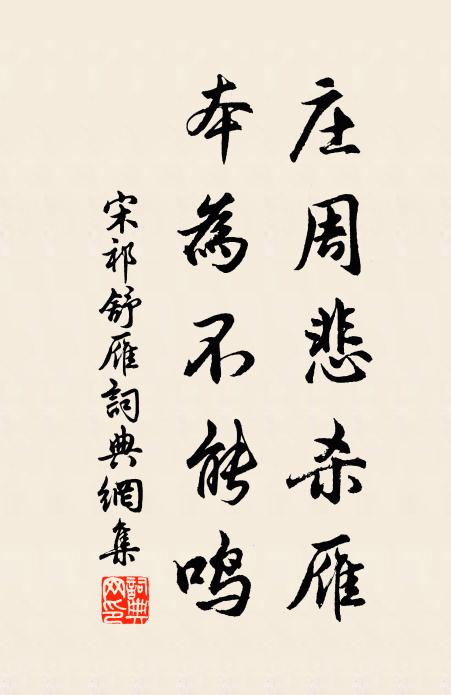 庄周悲杀雁
本为不能鸣
宋祁舒雁詞典網集
詞典网印